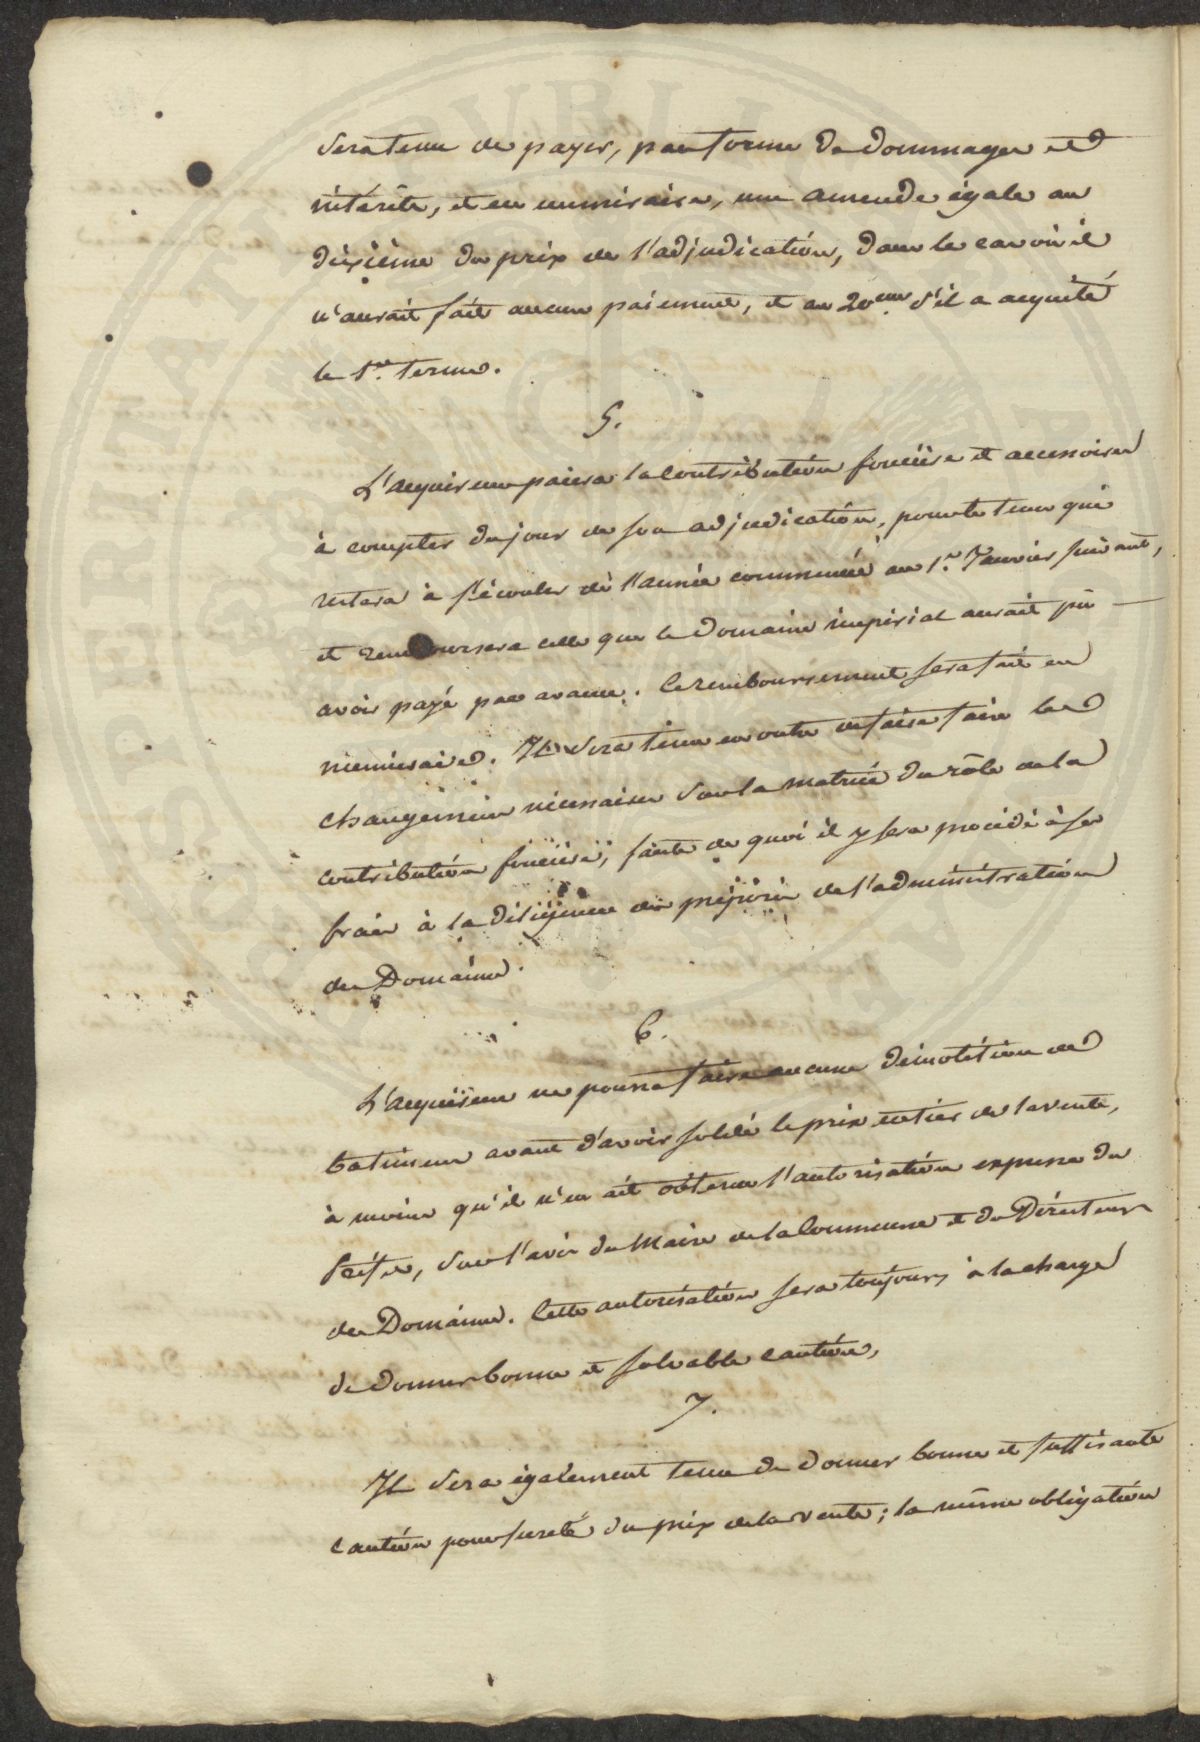 sera tenu de payer, par forme de dommages et
intérêts, et en numéraire, une amende égale au
dixième du prix de l'adjudication, dans le cas où il
n'aurait fait aucun paiement, et au 20eme s'il a acquité
le 1er terme.
5.
L'acquéreur paiera la Contribution foncière et accessoires
à compter du jour de son adjudication, pour le tems qui
restera à s'écouler de l'année commencée au 1er Janvier suivant,
et remboursera celle que le Domaine impérial aurait pû
avoir payé par avance. Ce remboursement sera fait en
numéraire. Il sera tenu en outre de faire faire les
changemens nécessaires sur la matrice du rôle de la
contribution foncière, faute de quoi il y sera procédé à ses
frais à la diligence des préposés de l'administration
des Domaines.
6.
L'acquéreur ne pourra faire aucune démolition de
batimens avant d'avoir soldé le prix entier de la vente,
à moins qu'il n'en ait obtenu l'autorisation expresse du
Préfet, sur l'avis du Maire de la Commune et du Directeur
des Domaines. Cette autorisation sera toujours à la charge
de donner bonne et solvable caution.
7.
Il sera également tenu de donner bonne et suffisante
caution pour sureté du prix de la vente; la même obligation